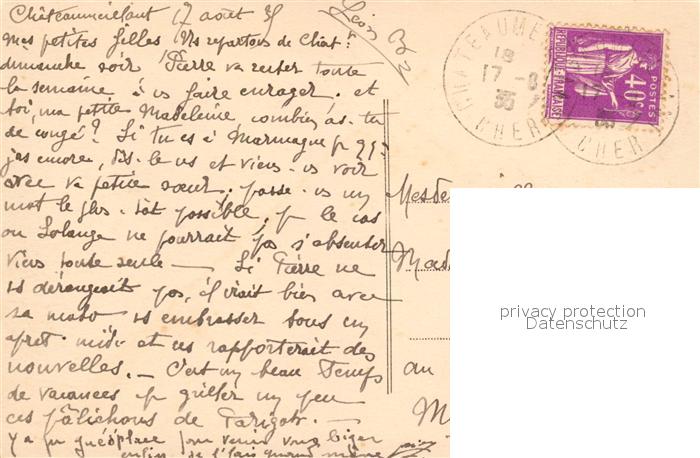 Châteaumeillant 17 août 35
Léon
Mes petites filles Ns repartons de Chât.
dimanche soir Pierre va rester toute
la semaine à vs faire enrager. et
toi, ma petite Madeleine, combien as-tu
de congé? Si tu es à Marmagne p qq
jrs encore, dis-le ns et viens ns voir
avec ta petite sœur. passe-ns un
mot le plus tôt possible, p le cas
où Solange ne pourrait pas s'absenter
viens toute seule — Si Pierre ne
vs dérangeait pas, il irait bien avec
sa moto vs embrasser tous un
après midi et ns rapporterait des
nouvelles. — C'est un beau temps
de vacances p griller un peu
ces pâlichons de Parigots. —
Y a pu qu'eul'place pour venir vous biger
enfin de l'faire quand même
CHATEAUME
18
17 -8
35
CHER
CHER
POSTES
40c
REPUBLIQUE FRANÇAISE
Mesde
Mad
au
M
privacy protection
Datenschutz